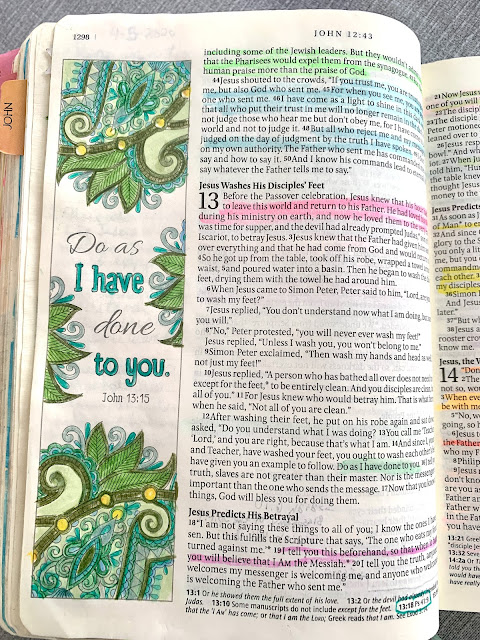 1298
JOHN 12:43
4-5-2020
JOHN
including some of the Jewish leaders. But they wouldn't
that the Pharisees would expel them from the synagogue.
human praise more than the praise of God.
44Jesus shouted to the crowds, "If you trust me, you are
me, but also God who sent me. 45For when you see me, you
one who sent me. 46I have come as a light to shine in this
that all who put their trust in me will no longer remain
not judge those who hear me but don't obey me, for I have
world and not to judge it. 48But all who reject me and my
judged on the day of judgment by the truth I have spoken.
on my own authority. The Father who sent me has commanded
say and how to say it. 50And I know his commands lead to
say whatever the Father tells me to say."
Jesus Washes His Disciples' Feet
13 Before the Passover celebration, Jesus knew that his
to leave this world and return to his Father. He had loved
during his ministry on earth, and now he loved them to the
was time for supper, and the devil had already prompted Judas,
Iscariot, to betray Jesus. 3Jesus knew that the Father had given
over everything and that he had come from God and would
4So he got up from the table, took off his robe, wrapped a towel
waist, 5and poured water into a basin. Then he began to wash
feet, drying them with the towel he had around him.
6When Jesus came to Simon Peter, Peter said to him, "Lord,
to wash my feet?"
7Jesus replied, "You don't understand now what I am doing,
you will."
8"No," Peter protested, "you will never ever wash my feet!"
Jesus replied, "Unless I wash you, you won't belong to me."
9Simon Peter exclaimed, "Then wash my hands and head as well,
not just my feet!"
10Jesus replied, "A person who has bathed all over does not need
except for the feet,* to be entirely clean. And you disciples are clean,
all of you." 11For Jesus knew who would betray him. That is what
when he said, "Not all of you are clean."
12After washing their feet, he put on his robe again and
asked, "Do you understand what I was doing? 13You call me
'Lord,' and you are right, because that's what I am. 14And since I,
and Teacher, have washed your feet, you ought to wash each other's
have given you an example to follow. Do as I have done to you.
you, slaves are not greater than their master. Nor is the messenger
important than the one who sends the message. 17Now that you know
things, God will bless you for doing them.
Jesus Predicts His Betrayal
18"I am not saying these things to all of you; I know the ones I have
sen. But this fulfills the Scripture that says, 'The one who eats my
turned against me.'* 19I tell you this beforehand, so that when
you will believe that I AM the Messiah.* 20I tell you the truth, anyone
welcomes my messenger is welcoming me, and anyone who welcomes
is welcoming the Father who sent me."
13:1 Or he showed them the full extent of his love. 13:2 Or the devil
Judas. 13:10 Some manuscripts do not include except for the feet. 13:18 Ps 41:9
that the 'I AM' has come; or that I am the LORD; Greek reads that I am.
Do as
I have
done
to you.
John 13:15
21Now Jesus
one of you will
22The disciples
23The disciple
Peter motioned
leaned over to
26Jesus
bowl." And
27When
told him, "Hurry
the table knew
thought Jesus
money to the
Jesus Predicts
31As soon as
of Man* to
32And since
glory to the
you only a little
me, but you
commandment
each other.
my disciples
36Simon
And Jesus
later."
37"But
38Jesus
rooster
know me.
Jesus, the
14 "Don't
not so,
3When
be with
5"No,
going, so
6Jesus
to the Father
who my
8Philip
9Jesus
don't know
are you
Father and
within the
in the Father
you have
13:21
13:32
14:2
told you
would have
have really